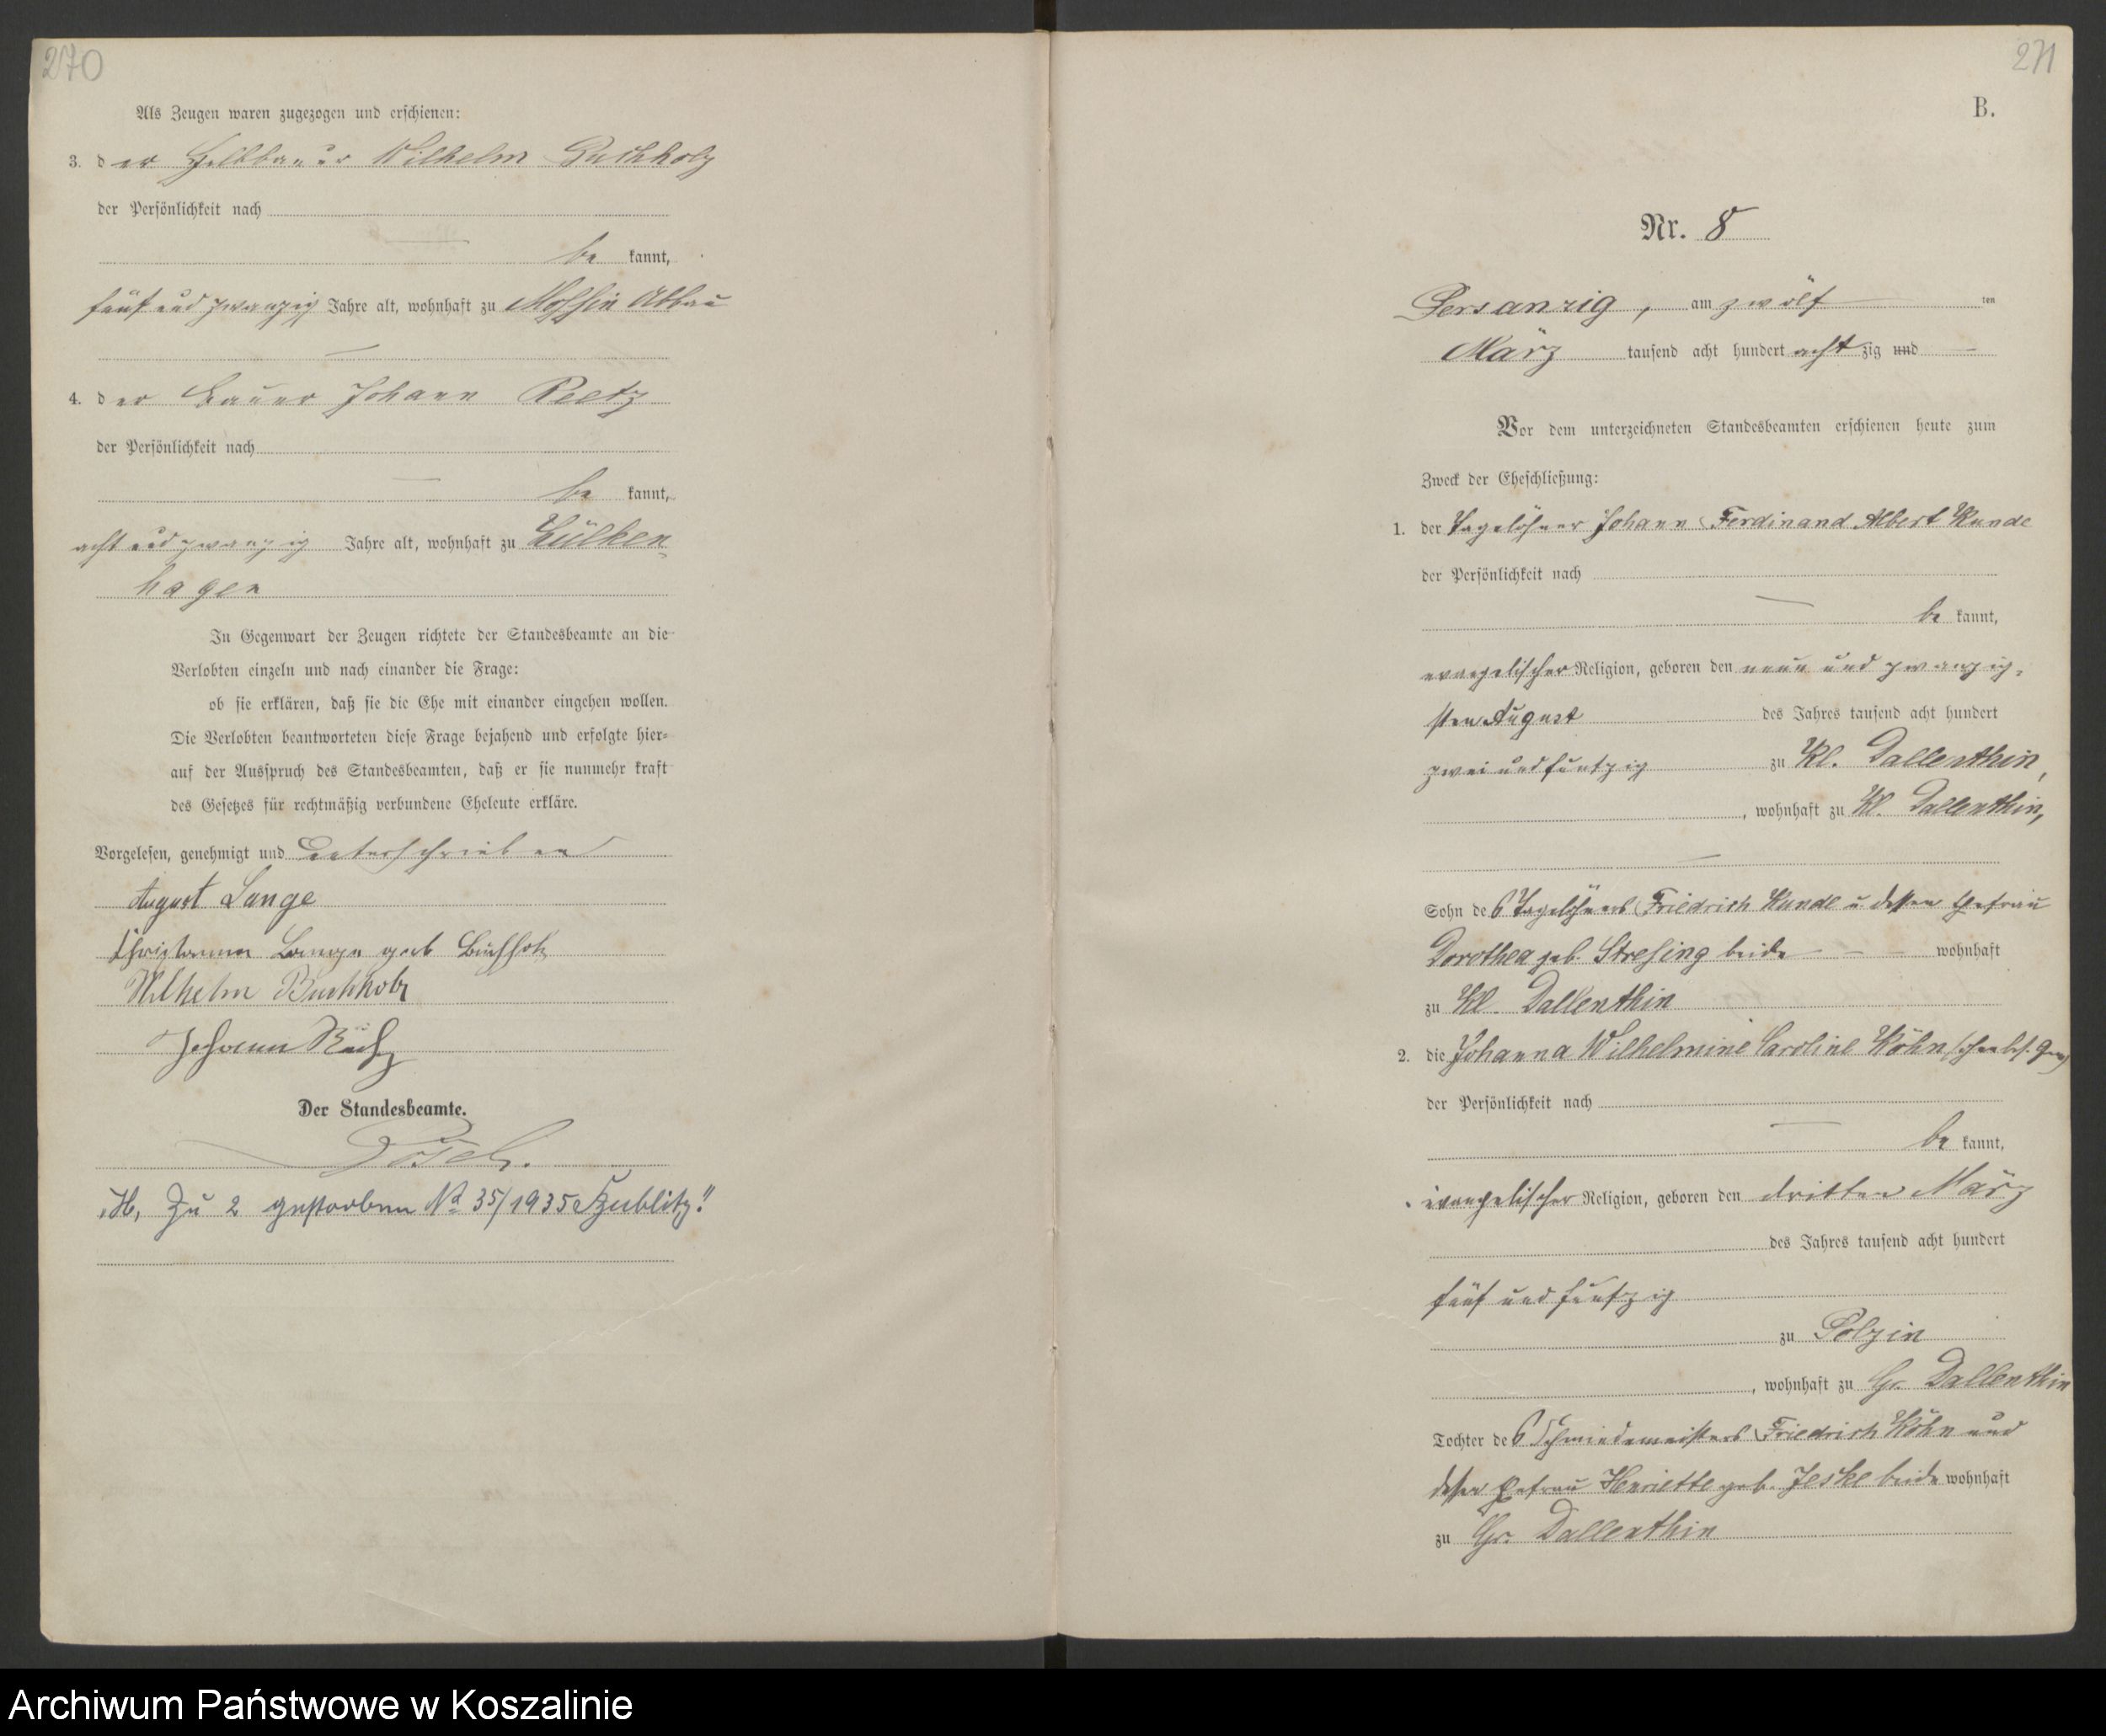 270
Als Zeugen waren zugezogen und erschienen:
3. der Halbbauer Wilhelm Buchholz
der Persönlichkeit nach
be kannt,
fünf und zwanzig Jahre alt, wohnhaft zu Mossin Abbau
4. der Bauer Johann Reetz
der Persönlichkeit nach
be kannt,
acht und zwanzig Jahre alt, wohnhaft zu Lülken-
hagen
In Gegenwart der Zeugen richtete der Standesbeamte an die
Verlobten einzeln und nach einander die Frage:
ob sie erklären, daß sie die Ehe mit einander eingehen wollen.
Die Verlobten beantworteten diese Frage bejahend und erfolgte hier-
auf der Ausspruch des Standesbeamten, daß er sie nunmehr kraft
des Gesetzes für rechtmäßig verbundene Eheleute erkläre.
Vorgelesen, genehmigt und unterschrieben
August Lange
Lange geb Buchholz
Wilhelm Buchholz
Johann
Der Standesbeamte.
„H, Zu 2 gestorben No 35/1935
271
B.
Nr. 8
Persanzig, am zwölf ten
März tausend acht hundert acht zig und
Vor dem unterzeichneten Standesbeamten erschienen heute zum
Zweck der Eheschließung:
1. der Tagelöhner Johann Ferdinand Albert Kunde
der Persönlichkeit nach
be kannt,
evangelischer Religion, geboren den neun und zwanzig-
sten August des Jahres tausend acht hundert
zwei und funfzig zu Kl. Dallenthin,
, wohnhaft zu Kl. Dallenthin,
Sohn des Tagelöhners Friedrich Kunde u. dessen Ehefrau
Dorothea geb. Stresing beide wohnhaft
zu Kl. Dallenthin
2. die Johanna Wilhelmine Caroline Köhn
der Persönlichkeit nach
be kannt,
evangelischer Religion, geboren den dritten März
des Jahres tausend acht hundert
fünf und funfzig
zu Polzin
, wohnhaft zu Gr. Dallenthin
Tochter des Schmiedemeisters Friedrich Köhn und
dessen Ehefrau Henriette geb. Jeske beide wohnhaft
zu Gr. Dallenthin
Archiwum Państwowe w Koszalinie